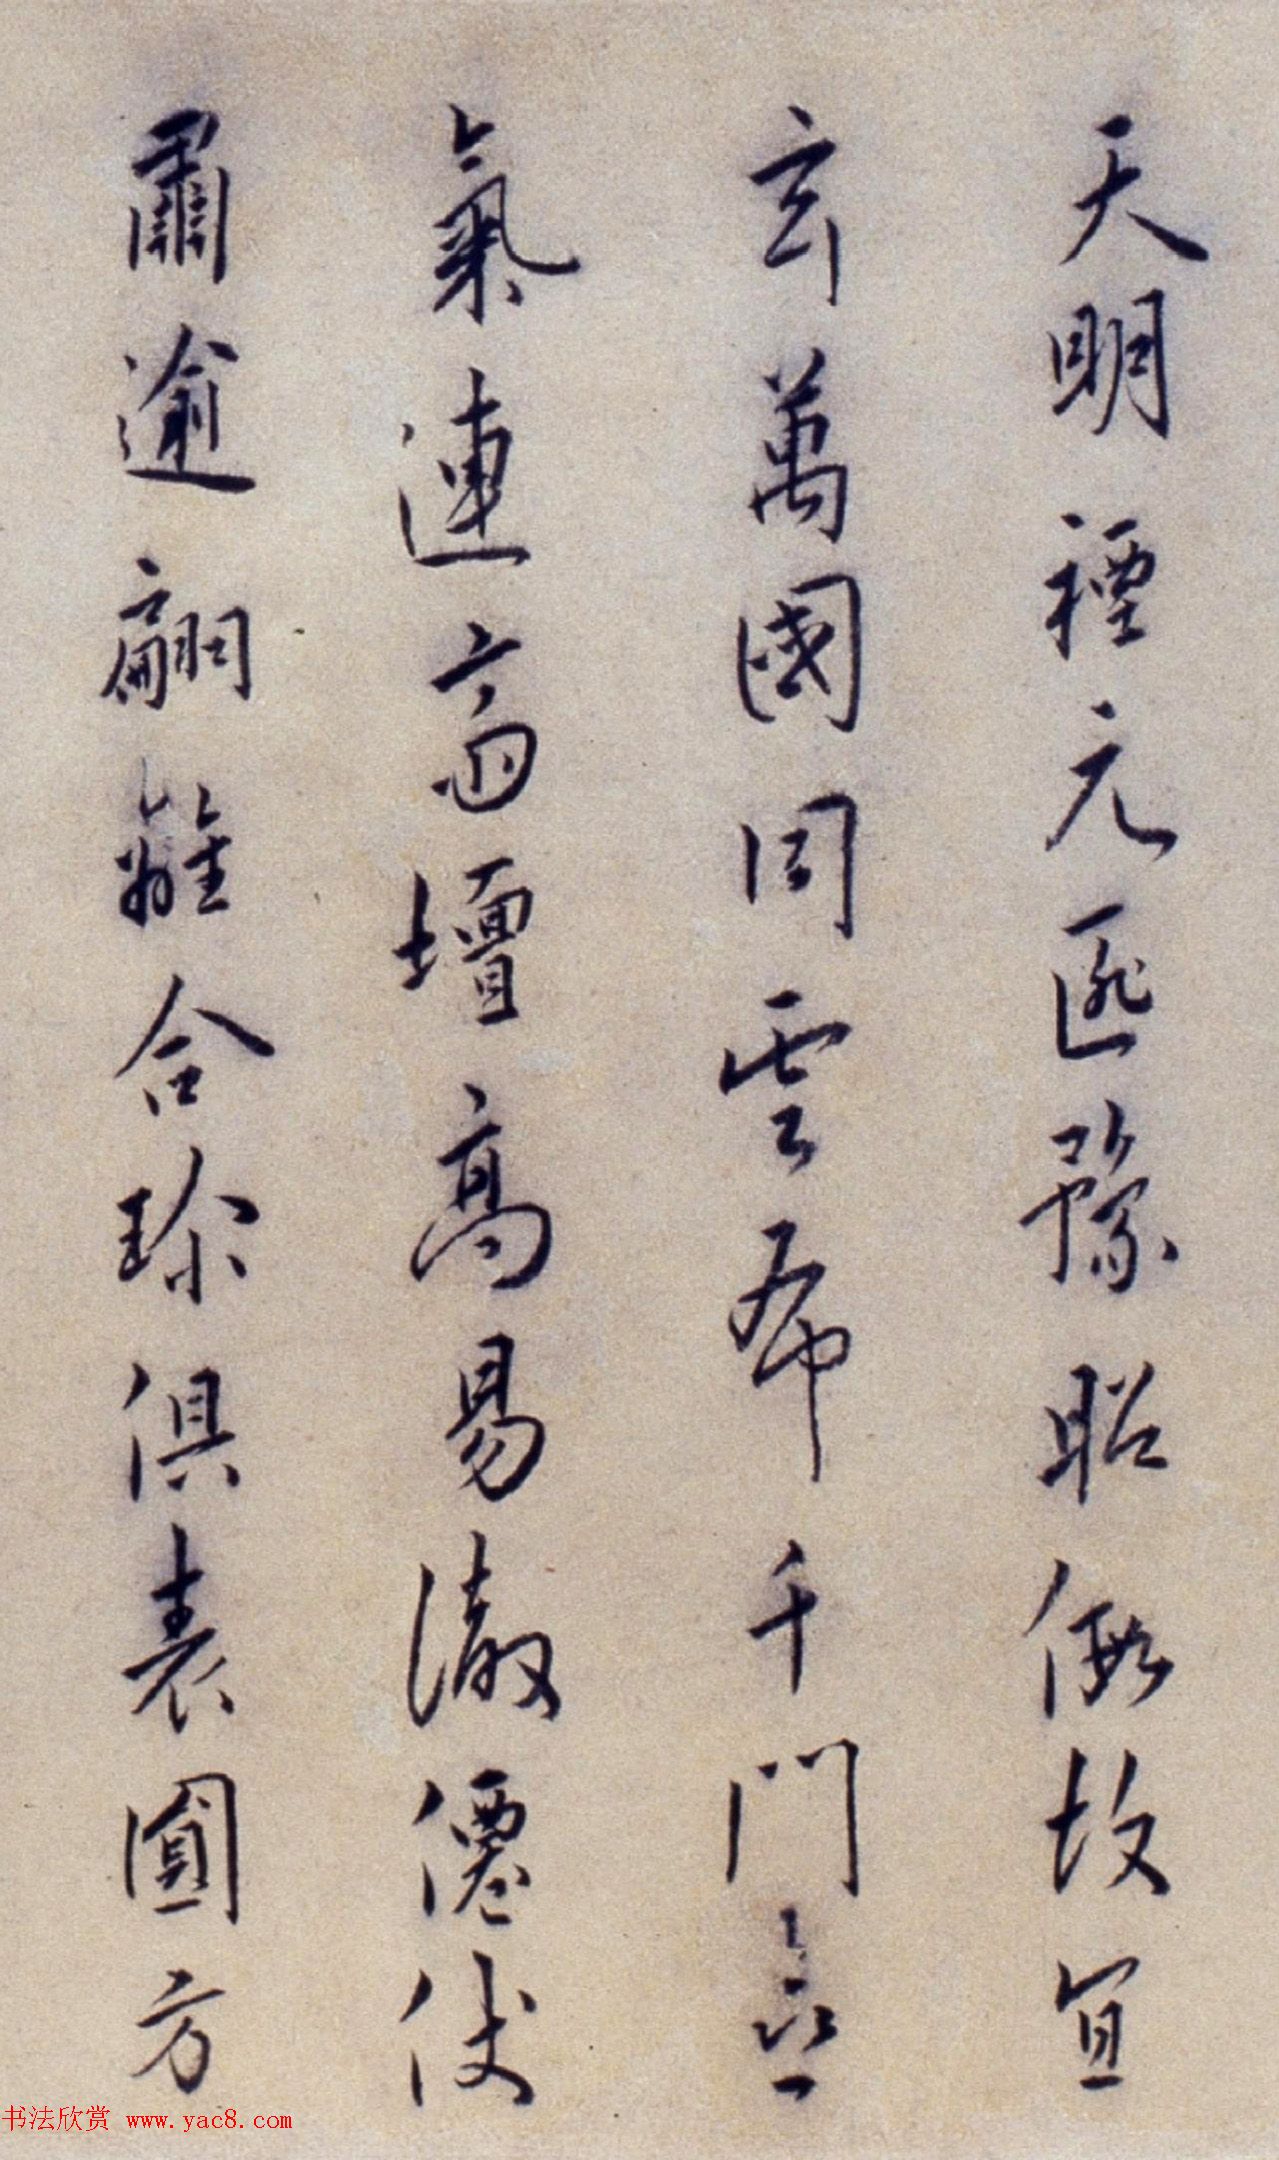 天明禋元匪豫昭假故宜
玄萬國同雲布千門
氣連高壇高易澈僊仗
肅逾翩籬合珍俱表圓方
书法欣赏 www.yac8.com